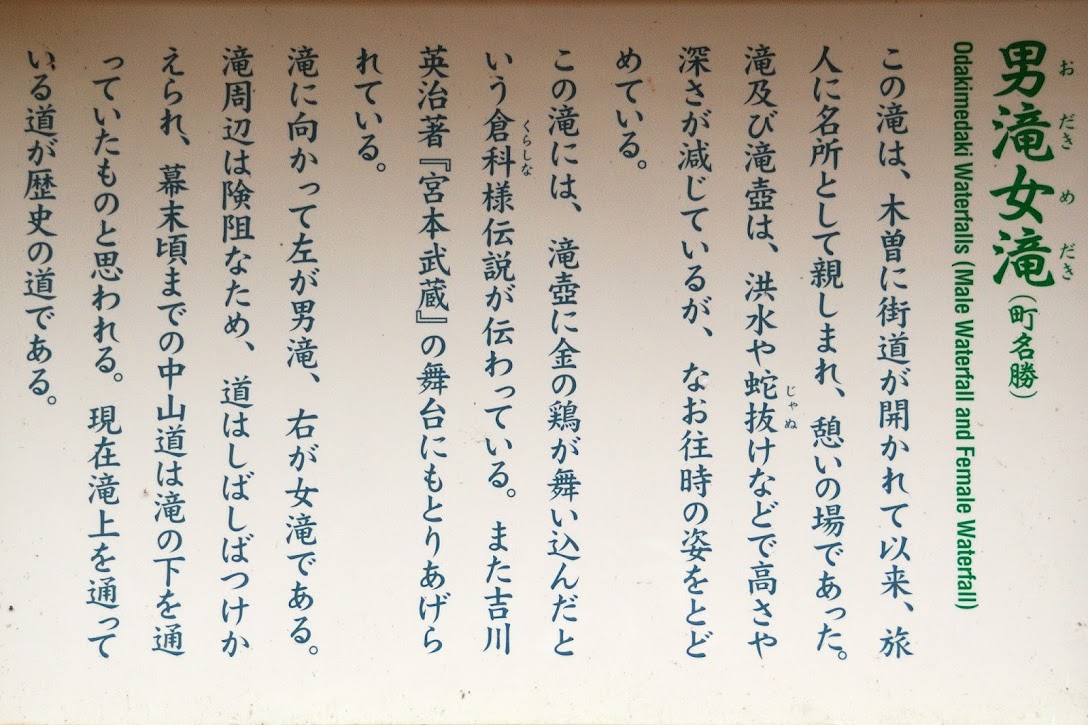 男滝女滝(町名勝)
おだきめだき
Odakimedaki Waterfalls (Male Waterfall and Female Waterfall)
この滝は、木曽に街道が開かれて以来、旅
人に名所として親しまれ、憩いの場であった。
滝及び滝壺は、洪水や蛇抜けなどで高さや
じゃぬ
深さが減じているが、なお往時の姿をとど
めている。
この滝には、滝壺に金の鶏が舞い込んだと
いう倉科様伝説が伝わっている。また吉川
くらしな
英治著『宮本武蔵』の舞台にもとりあげら
れている。
滝に向かって左が男滝、右が女滝である。
滝周辺は険阻なため、道はしばしばつけか
えられ、幕末頃までの中山道は滝の下を通
っていたものと思われる。現在滝上を通って
いる道が歴史の道である。